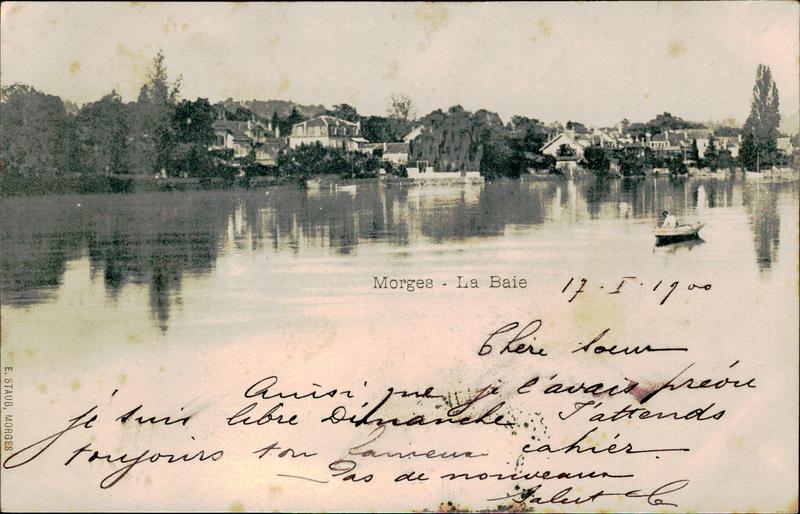 Morges - La Baie
17 · I · 1900
Chère Soeur
Ainsi que je l'avais prévu
je suis libre Dimanche J'attends
toujours ton fameux cahier.
Pas de nouveaux
Salut
E. STAUB, MORGES